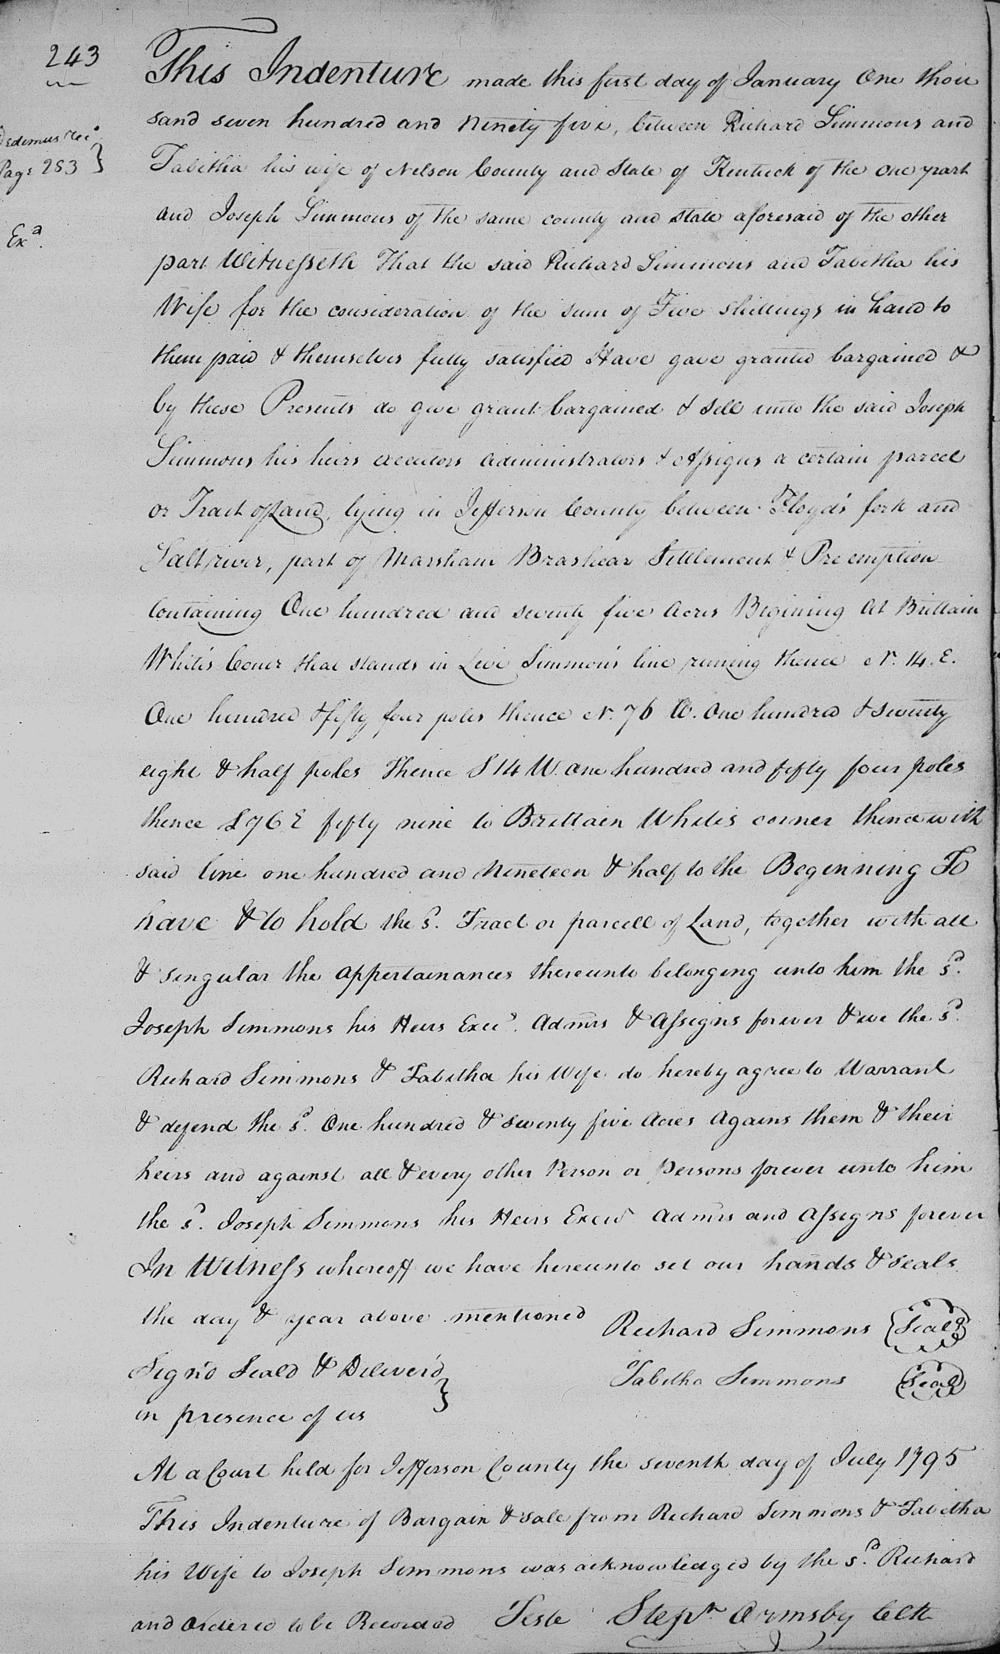 243
Dedimus Rec.d
Page 253 }
Ex.d
This Indenture made this first day of January One thou
sand seven hundred and Ninety five, between Richard Simmons and
Tabitha his wife of Nelson County and State of Kentuck of the one part
and Joseph Simmons of the same county and state aforesaid of the other
part Witnesseth That the said Richard Simmons and Tabitha his
Wife for the consideration of the sum of Five Shillings in hand to
them paid & themselves fully satisfied Have gave granted bargained &
by these Presents do give grant bargained & sell unto the said Joseph
Simmons his heirs executors administrators & Assigns a certain parcel
or Tract of Land, lying in Jefferson County between Floyd's fork and
Salt river, part of Marsham Brashear Settlement & Pre emption
Containing One hundred and seventy five Acres Begining At Brittain
White's Coner that stands in Levi Simmon's line runing thence N. 14. E.
One hundred & fifty four poles thence N. 76 W. One hundred & seventy
eight & half poles Thence S 14 W. one hundred and fifty four poles
thence S 76 E fifty nine to Brittain Whites corner thence with
said line one hundred and Nineteen & half to the Beginning To
have & to hold the s.d Tract or parcell of Land, together with all
& singular the appertainances thereunto belonging unto him the s.d
Joseph Simmons his Heirs Exec.rs Admrs & Assigns forever & we the s.d
Richard Simmons & Tabitha his Wife do hereby agree to Warrant
& defend the s.d One hundred & seventy five Acres Agains them & their
heirs and against all & every other Person or Persons forever unto him
the s.d Joseph Simmons his Heirs Execrs Admrs and Assigns forever
In Witness whereoff we have hereunto set our hands & seals
the day & year above mentioned Richard Simmons (Seal)
Sign'd Seald & Deliver'd } Tabitha Simmons (Seal)
in presence of us
At a Court held for Jefferson County the seventh day of July 1795
This Indenture of Bargain & sale from Richard Simmons & Tabitha
his Wife to Joseph Simmons was acknowledged by the s.d Richard
and ordered to be Recorded Teste Step.n Ormsby Clk